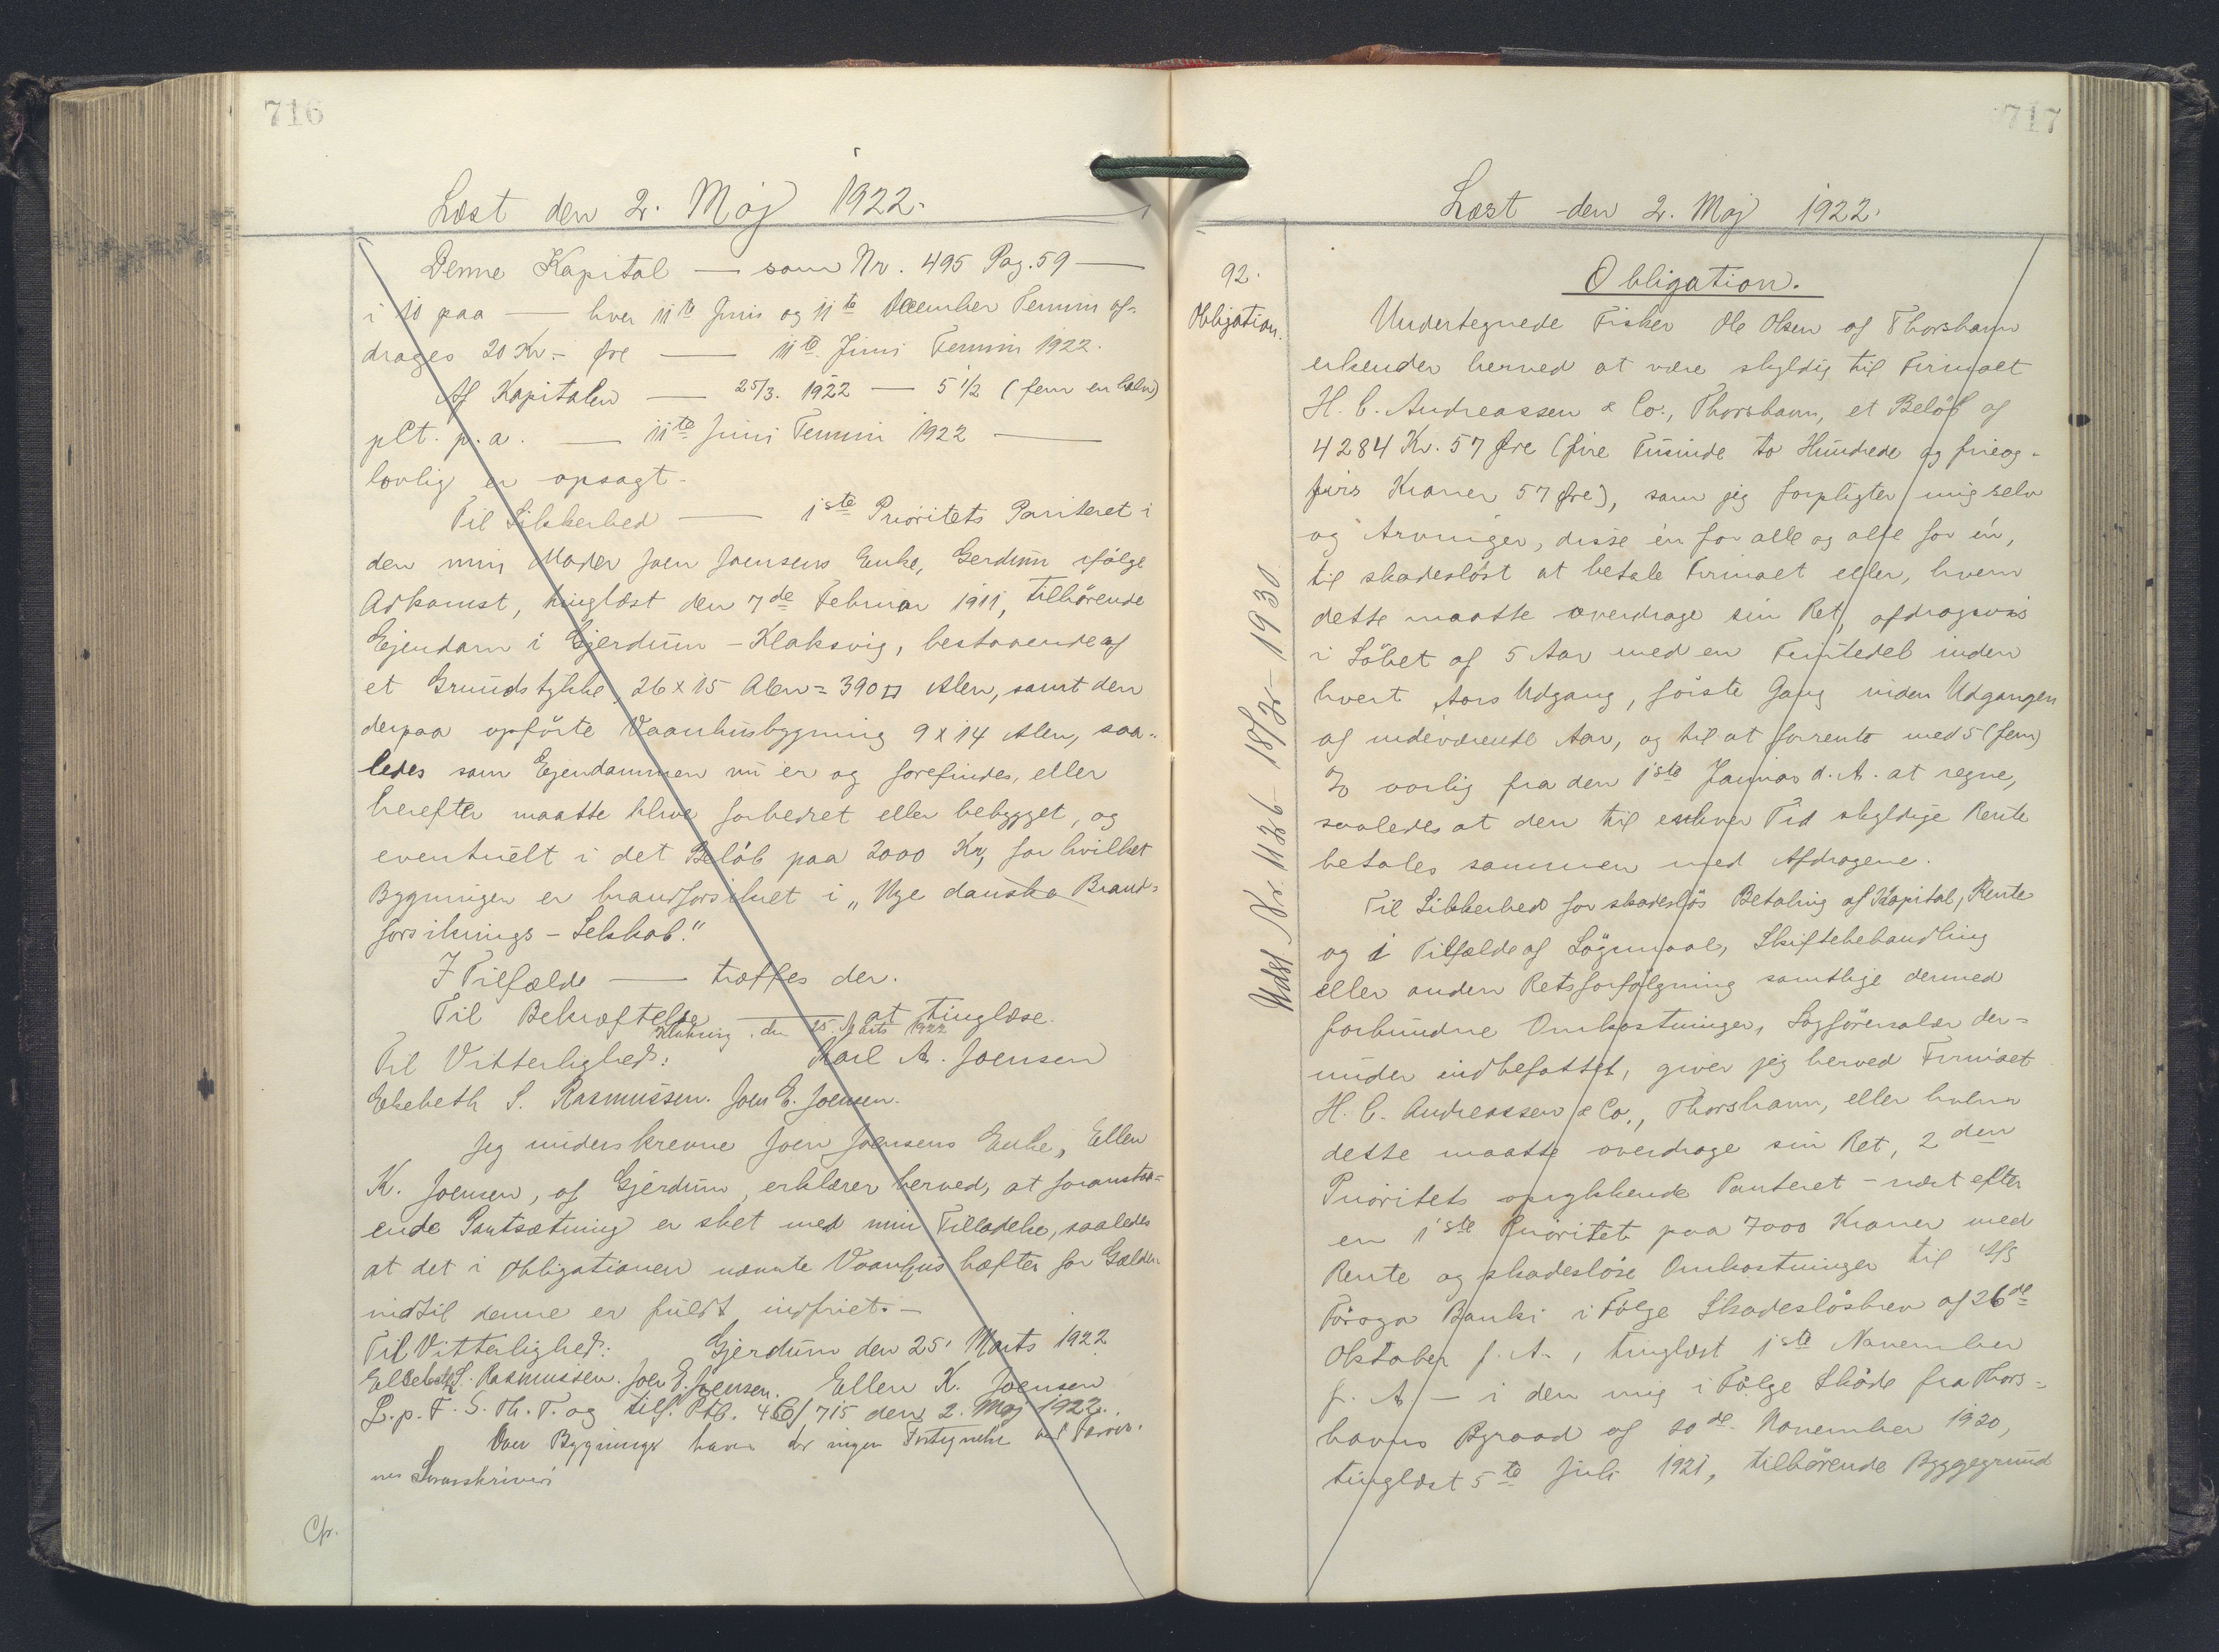 716
Læst den 2. Maj 1922.
Denne Kapital — som Nr. 495 Pag. 59 —
i 10 paa — hver 11te Juni og 11te December Termin af-
drages 20 Kr. - Øre — 11te Juni Termin 1922.
Af Kapitalen — 25/3. 1922 — 5 1/2 (fem en halv)
pCt. p. a. — 11te Juni Termin 1922 —
lovlig er opsagt.
Til Sikkerhed — 1ste Prioritets Panteret i
den min Moder Joen Joensens Enke, Gerdum ifølge
Adkomst, tinglæst den 7de Februar 1911, tilhörende
Ejendom i Gjerdum - Klaksvig, bestaaende af
et Grundstykke, 26 x 15 Alen = 390 □ Alen, samt den
derpaa opförte Vaanhusbygning 9 x 14 Alen, saa-
ledes som Ejendommen nu er og forefindes, eller
herefter maatte blive forbedret eller bebygget, og
eventuelt i det Belöb paa 2000 Kr, for hvilket
Bygningen er brandforsikret i „Nye danske Brand-
forsikrings - Selskab."
I Tilfælde — træffes der.
Til Bekræftelse — at tinglæse.
Klaksvig, den 25. Marts 1922
Til Vitterlighed: Karl A. Joensen
Elsebeth S. Rasmussen. Joen E. Joensen.
Jeg underskrevne Joen Joensens Enke, Ellen
K. Joensen, af Gjerdum, erklærer herved, at foranstaa-
ende Pantsætning er sket med min Tilladelse, saaledes
at det i Obligationen nævnte Vaanhus hæfter for Gælden
indtil denne er fuldt indfriet. -
Til Vitterlighed: Gjerdum den 25' Marts 1922
Elsebeth S. Rasmussen. Joen E. Joensen. Ellen K. Joensen
L. p. F. S. Th. T. og tilf. Ptb. 4 715 den 2. Maj 1922.
Over Bygninger haves der ingen Fortegnelse ved Færöer-
nes Sorenskriveri
Cfr.
717
Læst den 2. Maj 1922.
92.
Obligation.
Udsl Nr 1126 - 18/ - 1930
Obligation.
Undertegnede Fisker Ole Olsen af Thorshavn
erkender herved at være skyldig til Firmaet
H. C. Andreassen & Co., Thorshavn, et Belöb af
4284 Kr. 57 Øre (fire Tusinde to Hundrede og fireog-
firs Kroner 57 Øre), som jeg forpligter mig selv
og Arvinger, disse én for alle og alle for én,
til skadeslöst at betale Firmaet eller, hvem
dette maatte overdrage sin Ret, afdragsvis
i Löbet af 5 Aar med en Femtedel inden
hvert Aars Udgang, förste Gang inden Udgangen
af indeværende Aar, og til at forrente med 5 (fem)
% aarlig fra den 1ste Januar d. A. at regne,
saaledes at den til enhver Tid skyldige Rente
betales sammen med Afdragene.
Til Sikkerhed for skadeslös Betaling af Kapital, Rente
og i Tilfælde af Lögsmaal, Skiftebehandling
eller anden Retsforfölgning samtlige dermed
forbundne Omkostninger, Sagförersalær der-
under indbefattet, giver jeg herved Firmaet
H. C. Andreassen & Co., Thorshavn, eller hvem
dette maatte overdrage sin Ret, 2den
Prioritets oprykkende Panteret - næst efter
en 1ste Prioritet paa 7000 Kroner med
Rente og skadeslöse Omkostninger til A/S
Föroya Banki i Fölge Skadeslösbrev af 26de
Oktober f. A., tinglæst 1ste November
f. A. - i den mig i Fölge Sköde fra Thors-
havns Byraad af 20de November 1920,
tinglæst 5te Juli 1921, tilhörende Byggegrund